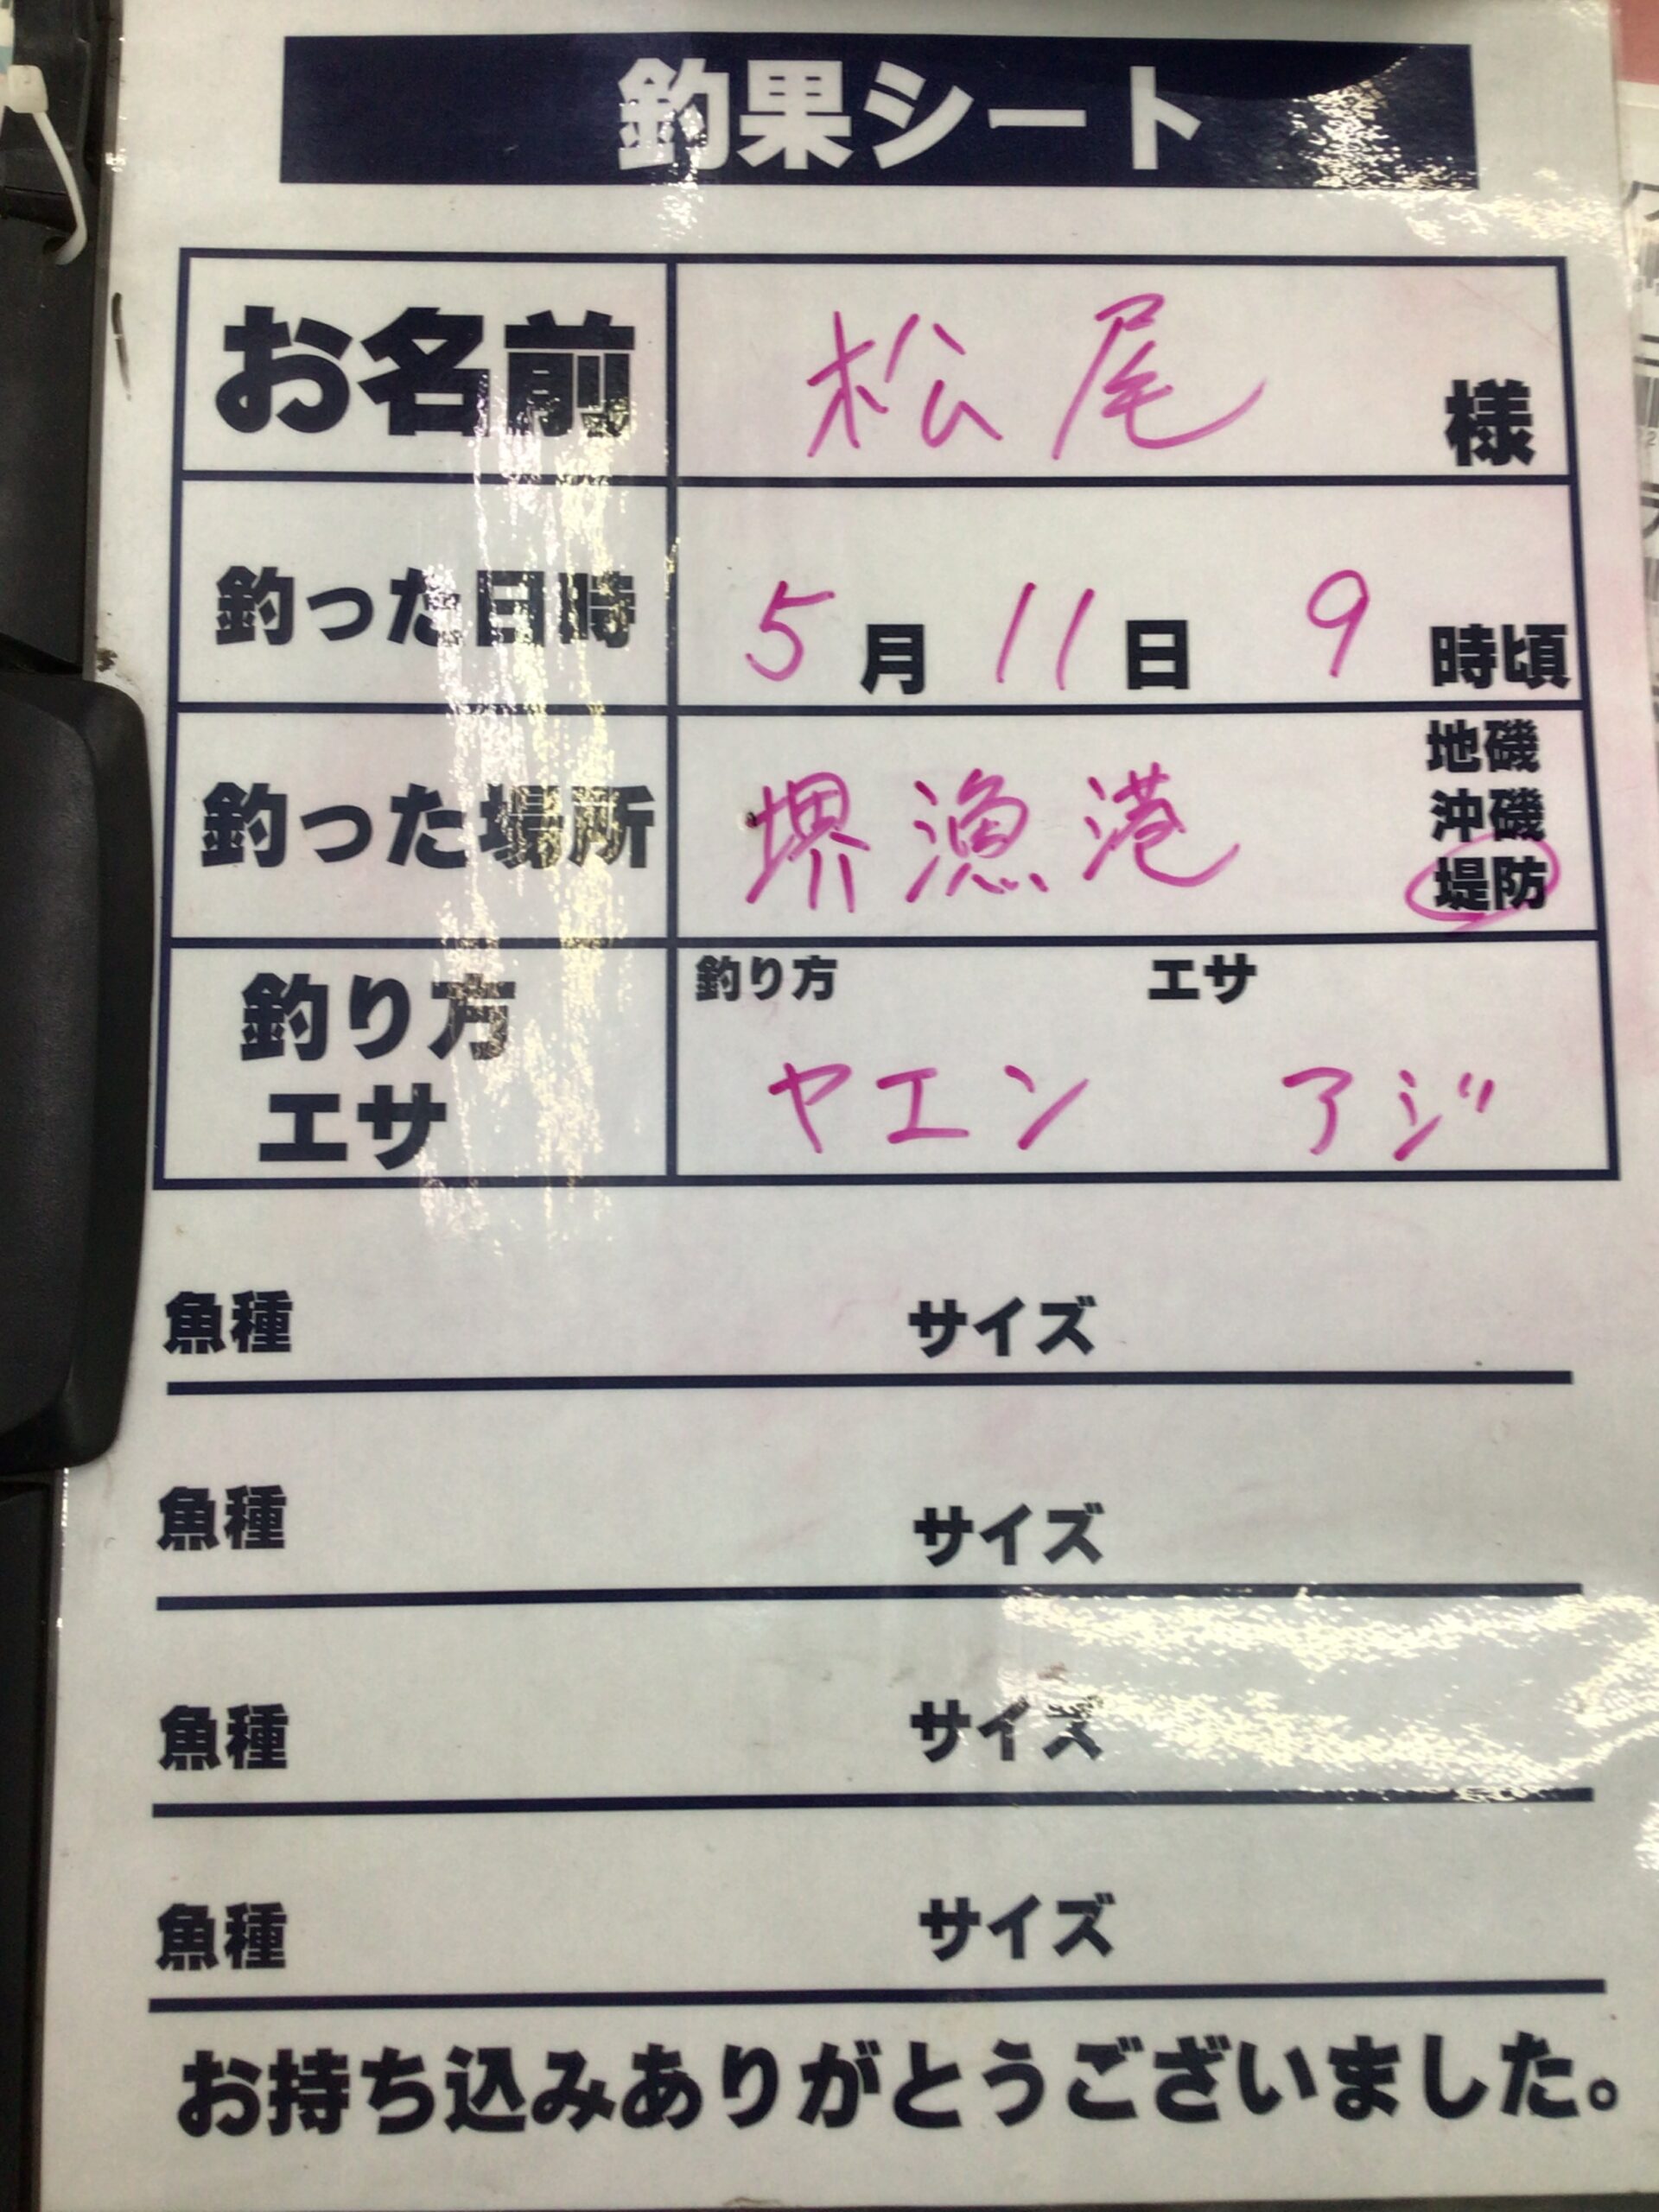 釣果シート
お名前 松尾 様
釣った日時 5月11日 9時頃
釣った場所 堺漁港 地磯
沖磯
堤防
釣り方 エサ
釣り方
エサ
ヤエン アジ
魚種 サイズ
魚種 サイズ
魚種 サイズ
魚種 サイズ
お持ち込みありがとうございました。